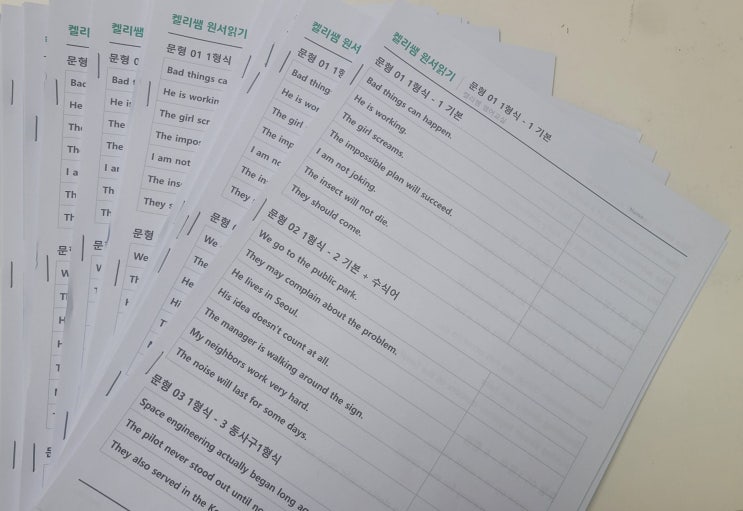 켈리쌤 원서읽기
문형 01 1형식 - 1 기본
문형 01 1형식 - 1 기본
Bad things can happen.
He is working.
The girl screams.
The impossible plan will succeed.
I am not joking.
The insect will not die.
They should come.
문형 02 1형식 - 2 기본 + 수식어
We go to the public park.
They may complain about the problem.
He lives in Seoul.
His idea doesn't count at all.
The manager is walking around the sign.
My neighbors work very hard.
The noise will last for some days.
문형 03 1형식 - 3 동사구1형식
Space engineering actually began long ag
The pilot never stood out until no
They also served in the K
켈리쌤 원서
문형 01 1형
Bad thing
He is wor
The girl
The imp
I am no
The in
They
문형
We
The
He
Hi
켈리쌤 원서읽기
문형 01 1형식
Bad things ca
He is workin
The girl scr
The impos
I am not
The inse
They s
문형
We
Th
He
켈리쌤
문형 01
Bad t
He i
The
The
I ar
The
Th
켈리
문형
Bac
He
The
Th
I a
Th
Th
문
W